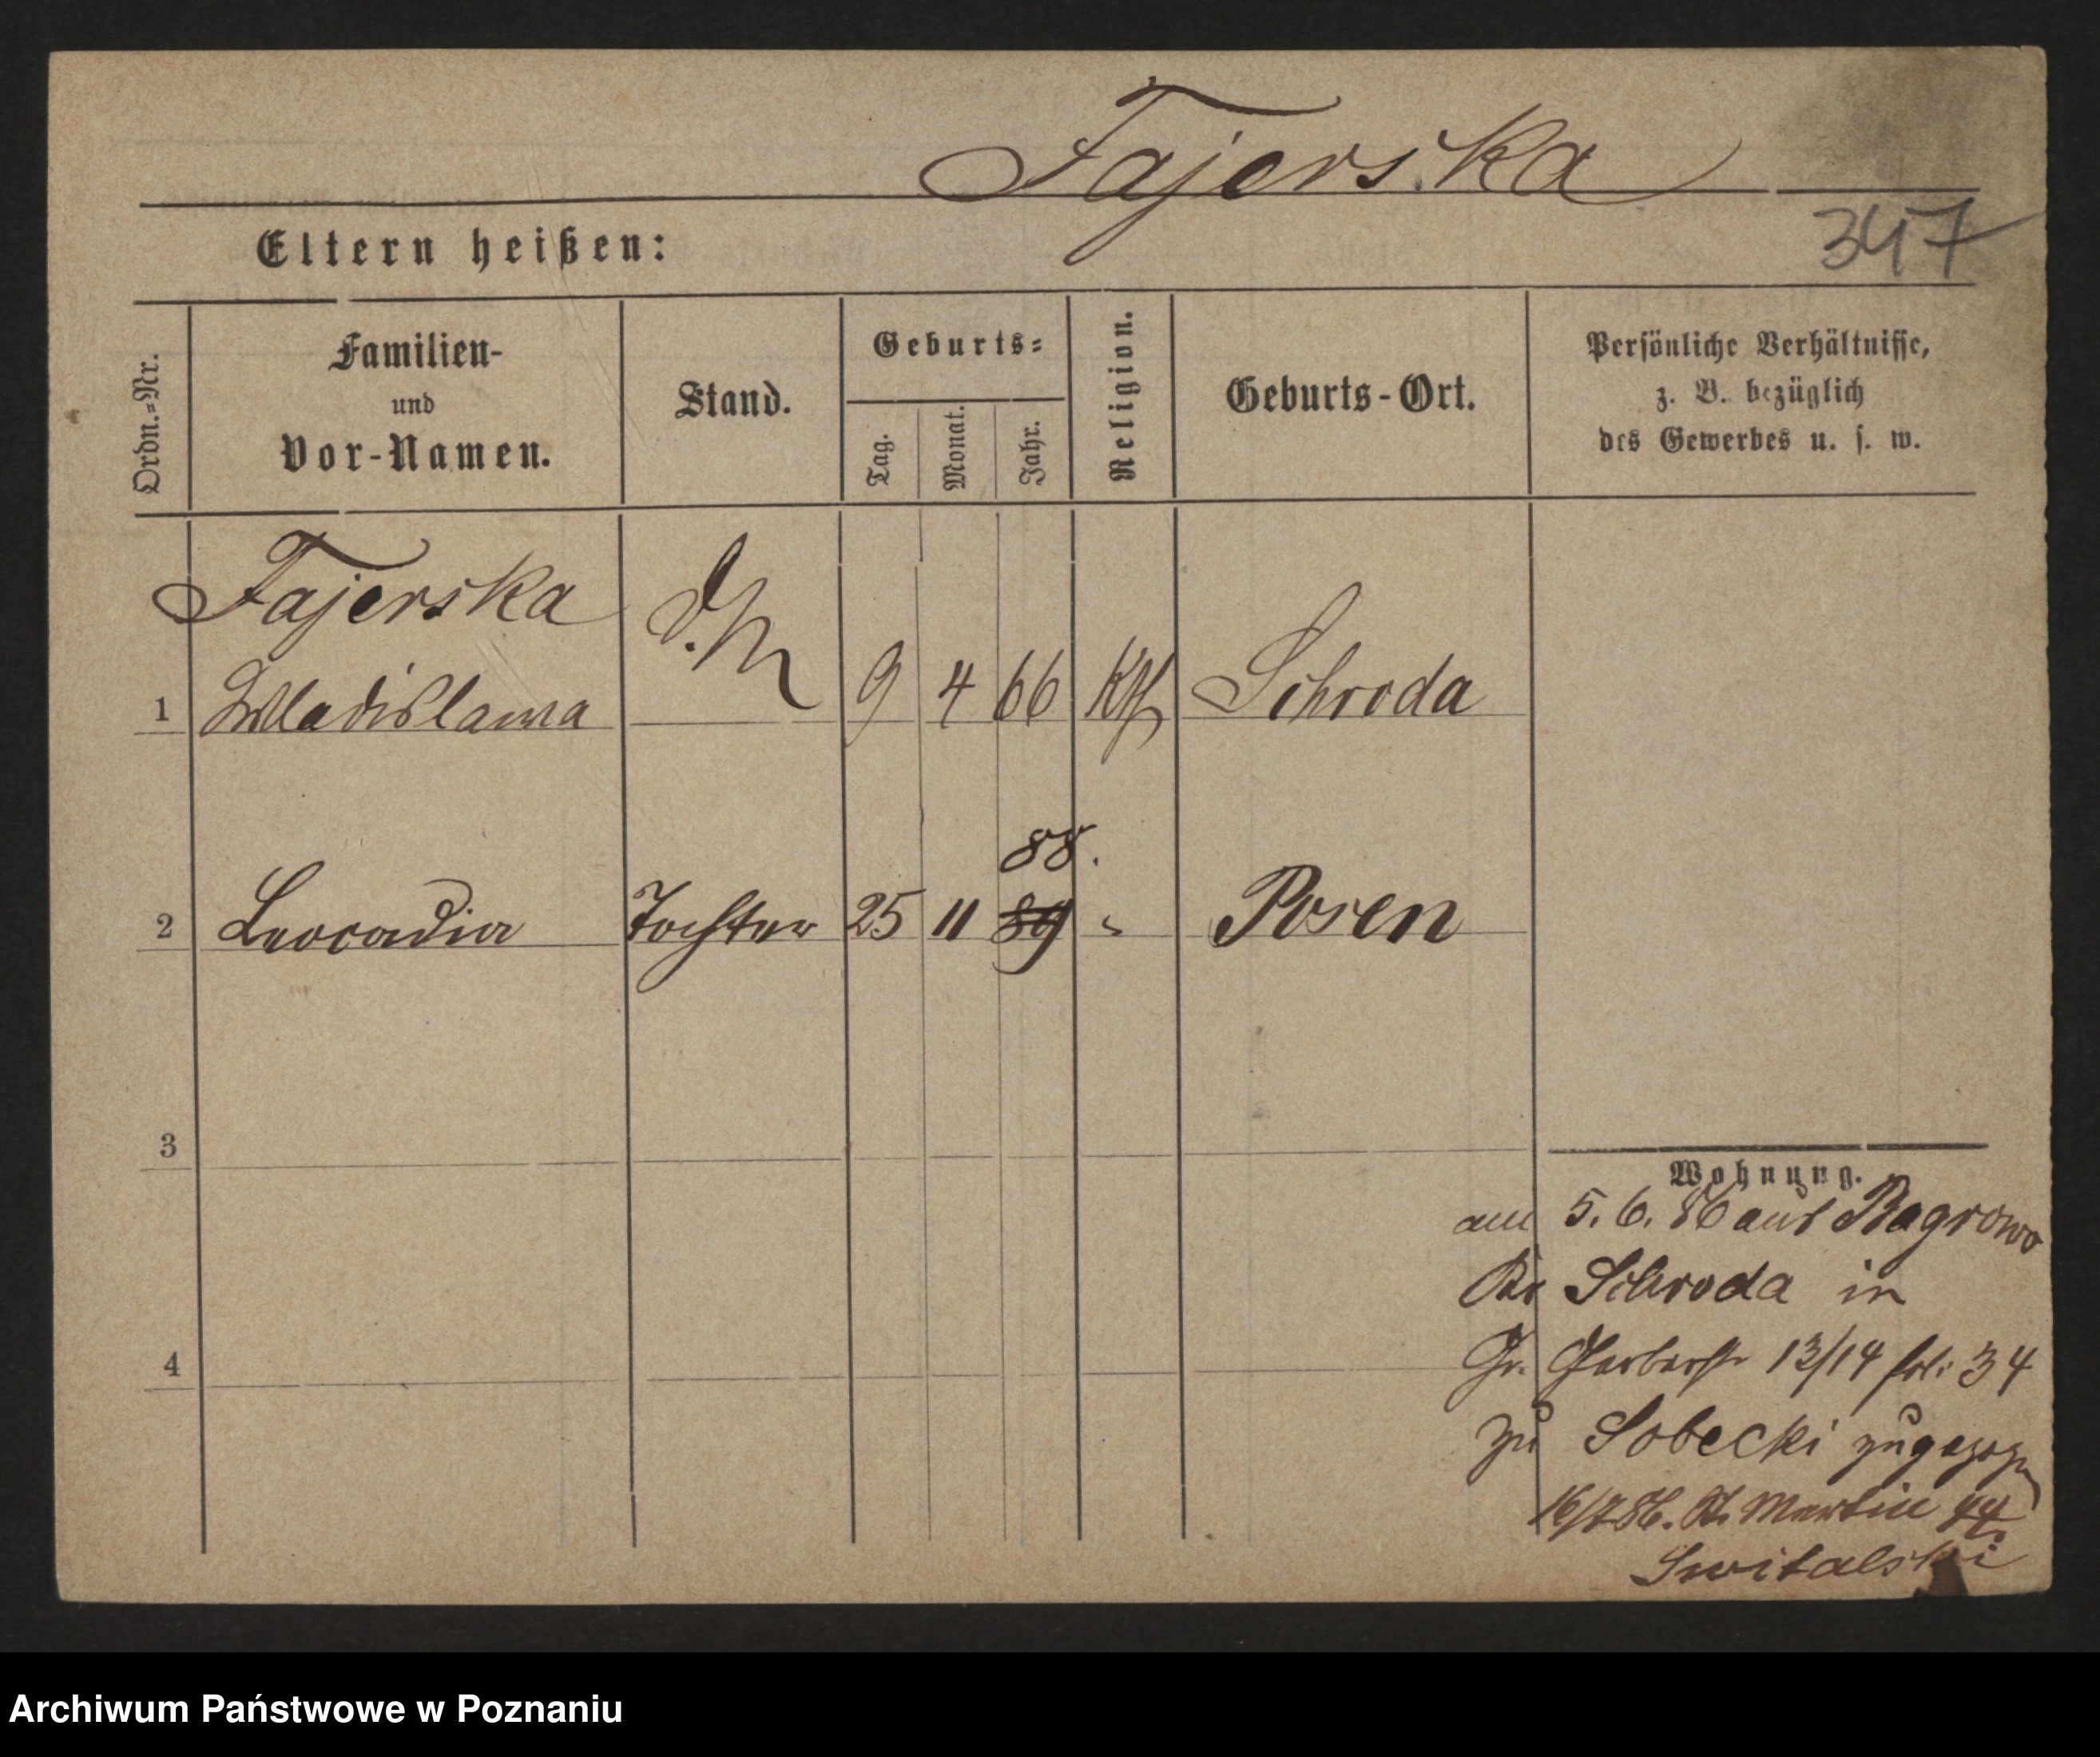 Fajerska
347
Eltern heißen:
Ordn.=Nr.
Familien-
und
Vor-Namen.
Stand.
Geburts=
Tag.
Monat.
Jahr.
Religion.
Geburts-Ort.
Persönliche Verhältnisse,
z. B. bezüglich
des Gewerbes u. s. w.
Fajerska
1 Wladislawa D.M 9 4 66 Kth Schroda
88.
2 Leocadia Tochter 25 11 89 " Posen
3
Wohnung.
am 5. 6. 86 aus Bagrowo
Kr Schroda in
4
Gr. Gerberstr 13/14 fol: 34
zu Sobecki zugezogen
16/7 86. St. Martin 44.
Switalski
Archiwum Państwowe w Poznaniu